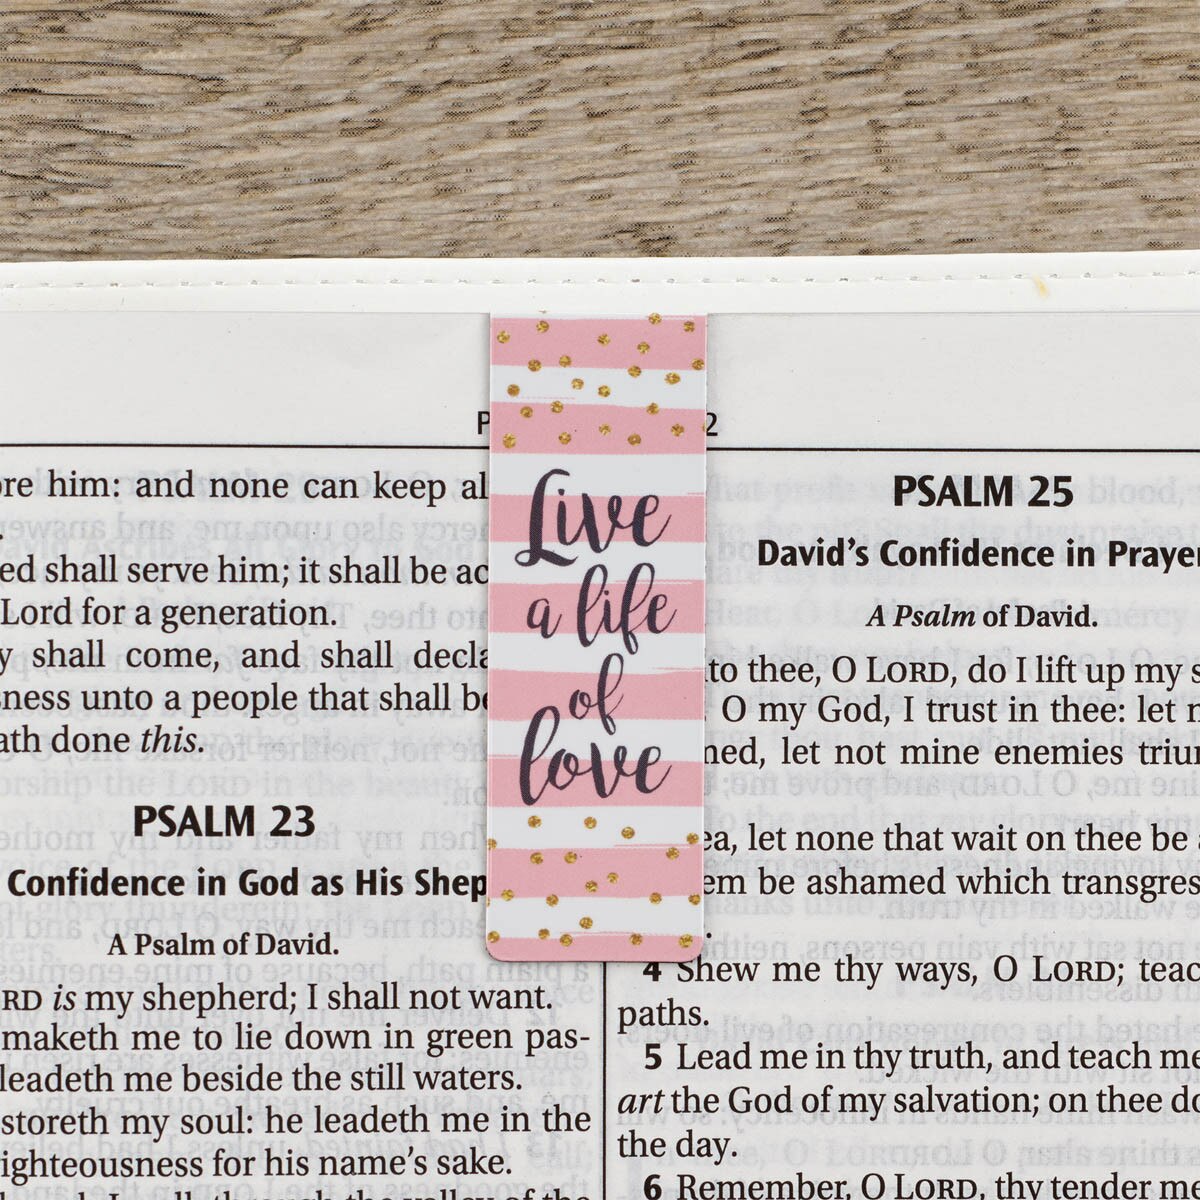 P
2
ore him; and none can keep al
ed shall serve him; it shall be ac
Lord for a generation.
y shall come, and shall decla
sness unto a people that shall be
ath done this.
PSALM 23
Confidence in God as His Shep
A Psalm of David.
ORD is my shepherd; I shall not want.
maketh me to lie down in green pas-
leadeth me beside the still waters.
storeth my soul: he leadeth me in the
ighteousness for his name's sake.
Live
a life
of
love
PSALM 25
David's Confidence in Prayer
A Psalm of David.
to thee, O LORD, do I lift up my s
O my God, I trust in thee: let n
ned, let not mine enemies triu
ea, let none that wait on thee be a
em be ashamed which transgres
4 Shew me thy ways, O LORD; teac
paths.
5 Lead me in thy truth, and teach me
art the God of my salvation; on thee do
the day.
6 Remember, O LORD, thy tender me